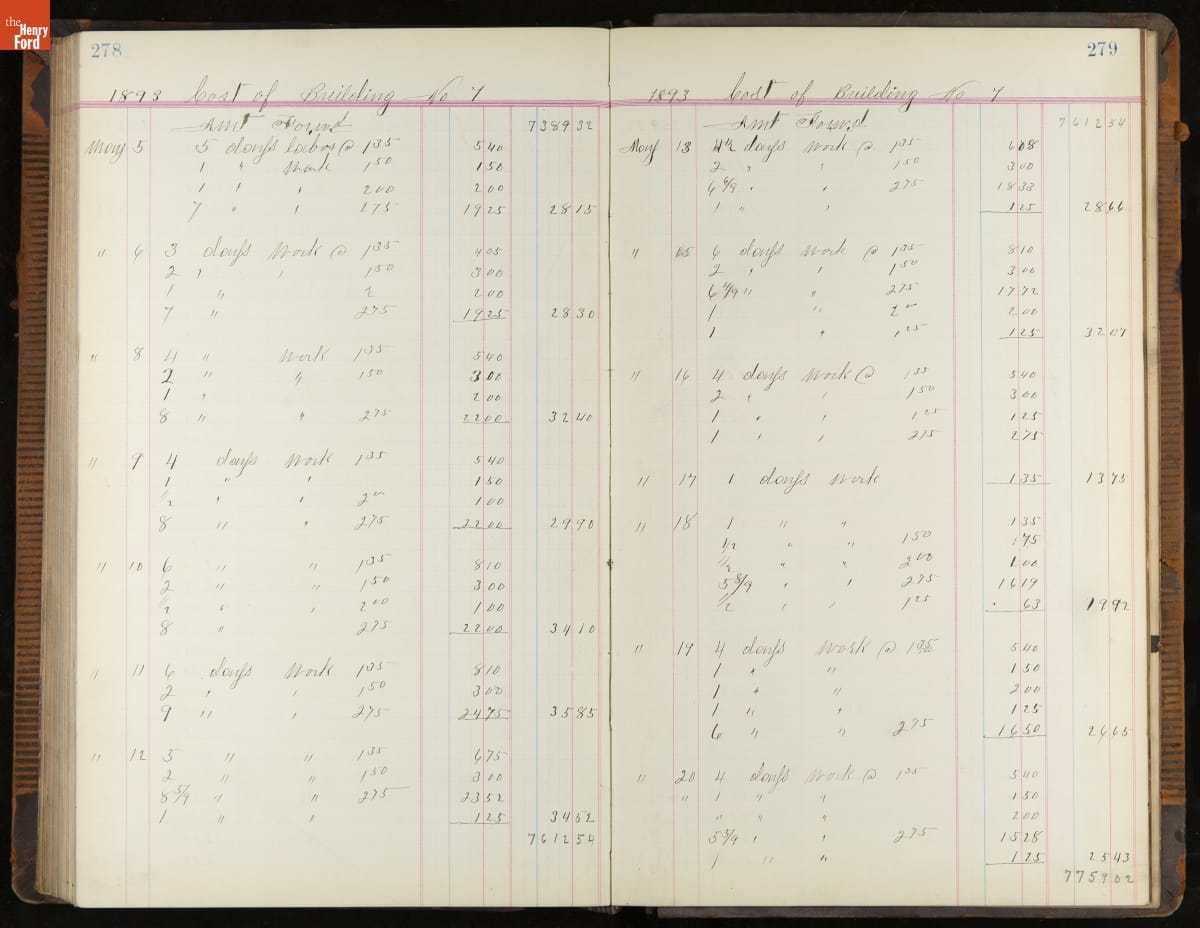 the Henry Ford
278
1893 Cost of Building No 7
Amt Forwd 7389 32
May 5 5 days labor @ 135 5 40
1 " Work 150 1 50
1 " " 200 2 00
7 " " 275 19 25 28 15
" 6 3 days Work @ 135 4 05
2 " " 150 3 00
1 " 2 2 00
7 " 275 19 25 28 30
" 8 4 " Work 135 5 40
2 " " 150 3 00
1 " 2 00
8 " " 275 22 00 32 40
" 9 4 days Work 135 5 40
1 " " 1 50
1/2 " " 200 1 00
8 " " 275 22 00 29 90
" 10 6 " " 135 8 10
2 " " 150 3 00
1/2 " " 200 1 00
8 " 275 22 00 34 10
" 11 6 days Work 135 8 10
2 " " 150 3 00
9 " " 275 24 75 35 85
" 12 5 " " 135 6 75
2 " " 150 3 00
8 5/9 " " 275 23 52
1 " " 1 25 34 52
7612 54
279
1893 Cost of Building No 7
Amt Forwd 7612 54
May 13 4 1/2 days Work @ 135 6 08
2 " " 150 3 00
6 6/9 " " 275 18 33
1 " " 1 25 28 66
" 15 6 days Work @ 135 8 10
2 " " 150 3 00
6 4/9 " " 275 17 72
1 " 200 2 00
1 " 125 1 25 32 07
" 16 4 days Work @ 135 5 40
2 " " 150 3 00
1 " " 125 1 25
1 " " 275 2 75
" 17 1 days Work 1 35 13 75
" 18 1 " " 1 35
1/2 " " 150 75
1/2 " " 200 1 00
5 8/9 " " 275 16 19
1/2 " " 125 63 19 92
" 19 4 days Work @ 135 5 40
1 " " 1 50
1 " " 2 00
1 " " 1 25
6 " " 275 16 50 26 65
" 20 4 days Work @ 135 5 40
" 1 " " 1 50
" " " 2 00
5 5/9 " " 275 15 28
1 " " 1 25 25 43
7759 02